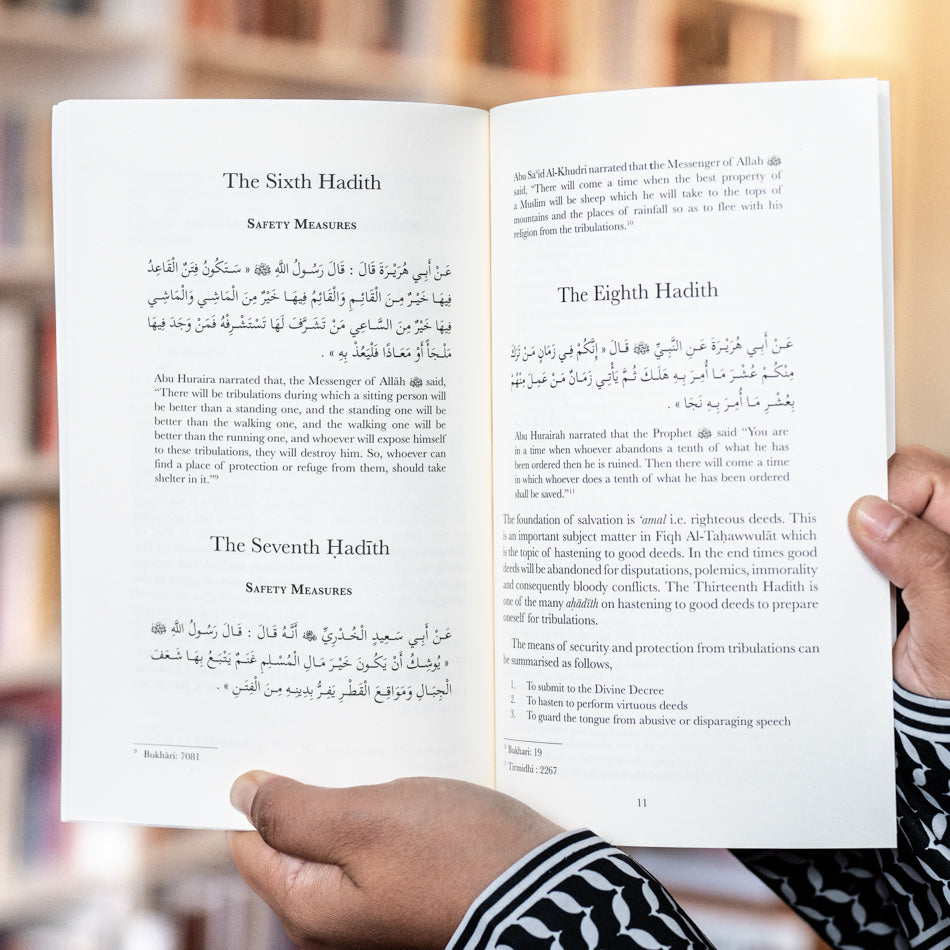 The Sixth Hadith
SAFETY MEASURES
عَـنْ أَبِـي هُرَيْـرَةَ قَالَ : قَالَ رَسُـولُ اللَّهِ ﷺ « سَـتَكُونُ فِتَنٌ الْقَاعِدُ
فِيهَا خَيْـرٌ مِـنَ الْقَائِـمِ وَالْقَائِمُ فِيهَـا خَيْرٌ مِنَ الْمَاشِـي وَالْمَاشِـي
فِيهَا خَيْرٌ مِنَ السَّـاعِي مَنْ تَشَـرَّفَ لَهَا تَسْتَشْـرِفْهُ فَمَنْ وَجَدَ فِيهَا
مَلْـجَأً أَوْ مَعَـاذًا فَلْيَعُذْ بِهِ » .
Abu Huraira narrated that, the Messenger of Allāh ﷺ said,
“There will be tribulations during which a sitting person will
be better than a standing one, and the standing one will be
better than the walking one, and the walking one will be
better than the running one, and whoever will expose himself
to these tribulations, they will destroy him. So, whoever can
find a place of protection or refuge from them, should take
shelter in it.”⁹
The Seventh Ḥadīth
SAFETY MEASURES
عَـنْ أَبِي سَـعِيدٍ الْخُـدْرِيِّ ﷺ أَنَّـهُ قَالَ : قَـالَ رَسُـولُ اللَّهِ ﷺ
« يُوشِـكُ أَنْ يَكُـونَ خَيْـرَ مَـالِ الْمُسْـلِمِ غَنَـمٌ يَتْبَـعُ بِهَـا شَـعَفَ
الْجِبَـالِ وَمَوَاقِـعَ الْقَطْـرِ يَفِـرُّ بِدِينِـهِ مِـنَ الْفِتَـنِ » .
⁹ Bukhāri: 7081
Abu Sa‘id Al-Khudri narrated that the Messenger of Allah ﷺ
said, “There will come a time when the best property of
a Muslim will be sheep which he will take to the tops of
mountains and the places of rainfall so as to flee with his
religion from the tribulations.¹⁰
The Eighth Hadith
عَـنْ أَبِي هُرَيْـرَةَ عَـنِ النَّبِـيِّ ﷺ قَـالَ « إِنَّكُمْ فِي زَمَانٍ مَنْ تَرَكَ
مِنْكُـمْ عُشْـرَ مَـا أُمِـرَ بِـهِ هَلَـكَ ثُـمَّ يَأْتِـي زَمَـانٌ مَـنْ عَمِـلَ مِنْهُمْ
بِعُشْـرِ مَـا أُمِـرَ بِـهِ نَجَا » .
Abu Hurairah narrated that the Prophet ﷺ said “You are
in a time when whoever abandons a tenth of what he has
been ordered then he is ruined. Then there will come a time
in which whoever does a tenth of what he has been ordered
shall be saved.”¹¹
The foundation of salvation is ‘amal i.e. righteous deeds. This
is an important subject matter in Fiqh Al-Taḥawwulāt which
is the topic of hastening to good deeds. In the end times good
deeds will be abandoned for disputations, polemics, immorality
and consequently bloody conflicts. The Thirteenth Hadith is
one of the many aḥādīth on hastening to good deeds to prepare
oneself for tribulations.
The means of security and protection from tribulations can
be summarised as follows,
1. To submit to the Divine Decree
2. To hasten to perform virtuous deeds
3. To guard the tongue from abusive or disparaging speech
Bukhari: 19
Tirmidhi : 2267
11